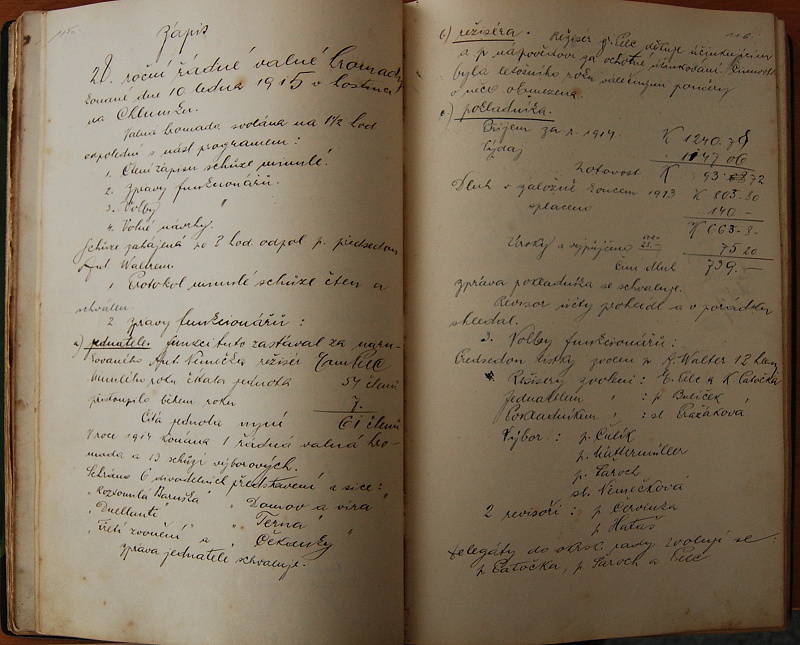 115.
Zápis
28. roční řádné valné hromady
konané dne 10 ledna 1915 v hostinci
na Chlumku.
Valná hromada svolána na 1½ hod
odpolední s násl programem:
1. Čtení zápisu schůze minulé.
2. Zprávy funkcionářů.
3. Volby "
4. Volné návrhy.
Schůze zahájena po 2 hod odpol p. předsedou
Ant Waltrem.
1 Protokol minulé schůze čten a
schválen.
2. Zprávy funkcionářů:
a) jednatele. funkci tuto zastával za naru-
kovaného Ant. Němečka režisér Pelc
Minulého roku čítala jednota 54 členů
přistoupilo během roku 7.
Čítá jednota nyní 61 členů
V roce 1914 konána 1 řádná valná hro-
mada a 13 schůzí výborových.
Sehráno 6 divadelních představení a sice:
"Rozkomilá Haruška" "Domov a víra"
"Duellanti" "Terna"
"Třetí zvonění" a "Čekanky"
Zpráva jednatele schvaluje.
116.
b) režiséra. Režiser p. Pelc děkuje účinkujícím
a p nápovědovi za ochotné účinkování. Činnost
byla letošního roku válečnými poměry
o něco obmezena.
c) pokladníka.
Příjem za r. 1914. K 1240.78
Výdaj 1147 06
hotovost K 93.72
Dluh v záložně koncem 1913 K 803.80
splaceno 140 -
K 663-8-
Úroky a vypůjčeno 75 20
Čin dluh 739.-
Zpráva pokladníka se schvaluje.
Revisor účty prohlédl a v pořádku
shledal.
3. Volby funkcionářů:
Předsedou lístky zvolen p A. Walter 12 hlasy
Režisery zvoleni: E. Pelc a K. Patočka
Jednatelem " : p Bulíček
Pokladníkem " : sl Pražáková
Výbor: p. Čulík
p. Wattermüller
p. Šaroch
sl. Němečková
2 revisoři: p Červinka
p Hataš
Delegáty do okrsk. rady zvolují se:
p Patočka, p. Šaroch a Pelc